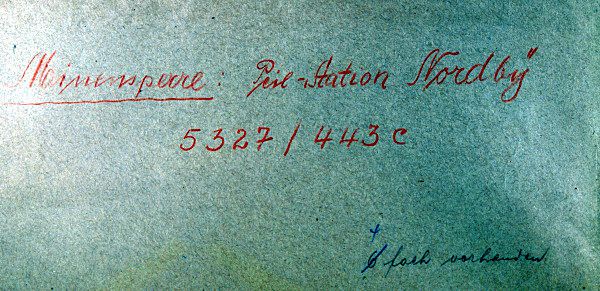 Meinensperre: Peil-Station Nordbÿ
5327/443c
6 fach vorhanden.